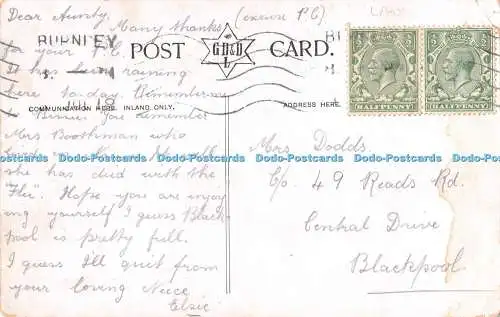 Dear Aunty, (excuse P.C)
Many thanks
for your P.C.
It has been raining
here to-day. Remember me
Bessie. You remember
Mrs Boothman who
she has died with the
"Flu". Hope you are enjoy
ing yourself I guess Black
pool is pretty full.
I guess I'll quit from
your loving Niece
Elsie
BURNLEY
POST CARD.
G.D.&D.
L
COMMUNICATION HERE. INLAND ONLY.
ADDRESS HERE.
HALFPENNY
HALFPENNY
Mrs Dodds.
C/o 49 Reads Rd.
Central Drive
Blackpool
Dodo-Postcards Dodo-Postcards Dodo-Postcards Dodo-Postcards Dodo-Postcards Dodo-Postcards